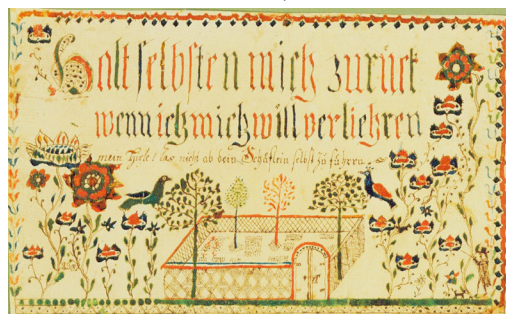 Halt selbsten mich zurück
wenn ich mich will verliehren
mein Hirte! lass nicht ab dein Schäflein selbst zu führen